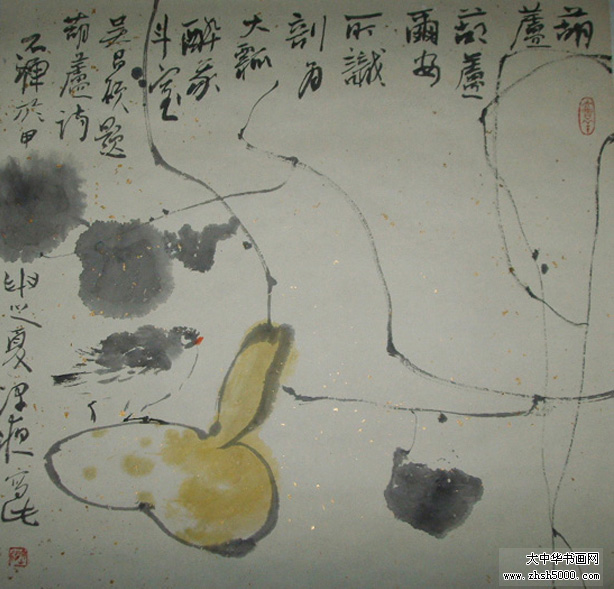 葫
蘆
葫蘆
爾安
所識
剖為
大瓢
醉我
斗室
吴昌碩題
葫蘆诗
石禪於甲
申之夏深夜寫此
大中华书画网
www.zhsh5000.com